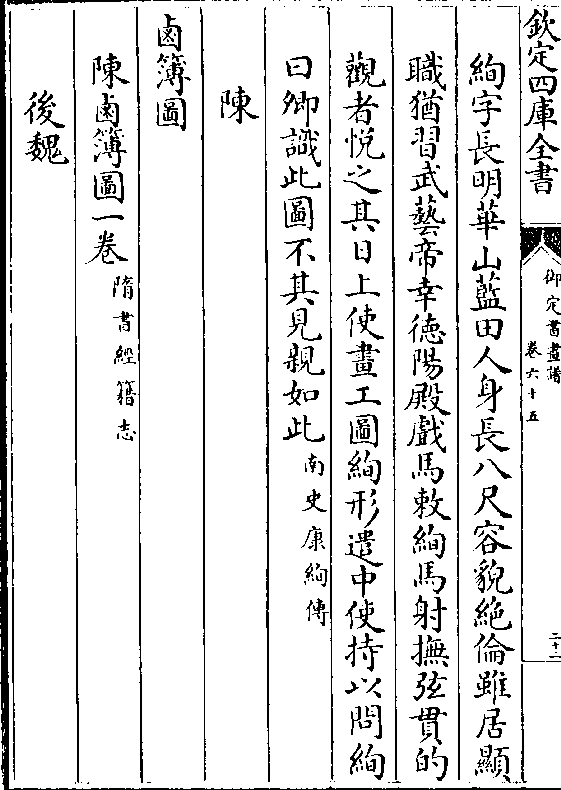 欽定四庫全書
御定書畫譜
卷六十五
二十二
絢字長明華山藍田人身長八尺容貌絶倫雖居顯
職猶習武藝帝幸德陽殿戲馬敕絢馬射撫弦貫的
觀者悦之其日上使畫工圖絢形遣中使持以問絢
曰卿識此圖不其見親如此南史康絢傳
陳
鹵簿圖
陳鹵簿圖一卷隋書經籍志
後魏